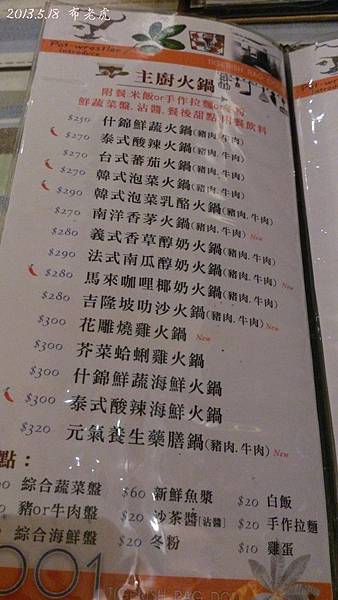 2013.5.18 布老虎
Pot-wrestler
introduce
TIGERISH RAG
主廚火鍋
附餐:米飯or手作拉麵or冬粉
鮮蔬菜盤.沾醬.餐後甜點.附餐飲料
$250 什錦鮮蔬火鍋(豬肉.牛肉)
$270 泰式酸辣火鍋(豬肉.牛肉)
$270 台式蕃茄火鍋(豬肉.牛肉)
$270 韓式泡菜火鍋(豬肉.牛肉)
$290 韓式泡菜乳酪火鍋(豬肉.牛肉)
$270 南洋香茅火鍋(豬肉.牛肉) New
$280 義式香草醇奶火鍋(豬肉.牛肉)
$290 法式南瓜醇奶火鍋(豬肉.牛肉) New
$280 馬來咖哩椰奶火鍋(豬肉.牛肉)
$280 吉隆坡叻沙火鍋(豬肉.牛肉) New
$300 花雕燒雞火鍋 New
$300 芥菜蛤蜊雞火鍋
$300 什錦鮮蔬海鮮火鍋
$300 泰式酸辣海鮮火鍋
$320 元氣養生藥膳鍋(豬肉.牛肉) New
點：
綜合蔬菜盤 $60 新鮮魚漿 $20 白飯
豬or牛肉盤 $20 沙茶醬[沾醬] $20 手作拉麵
綜合海鮮盤 $20 冬粉 $10 雞蛋
001
TIGERISH RAG DO